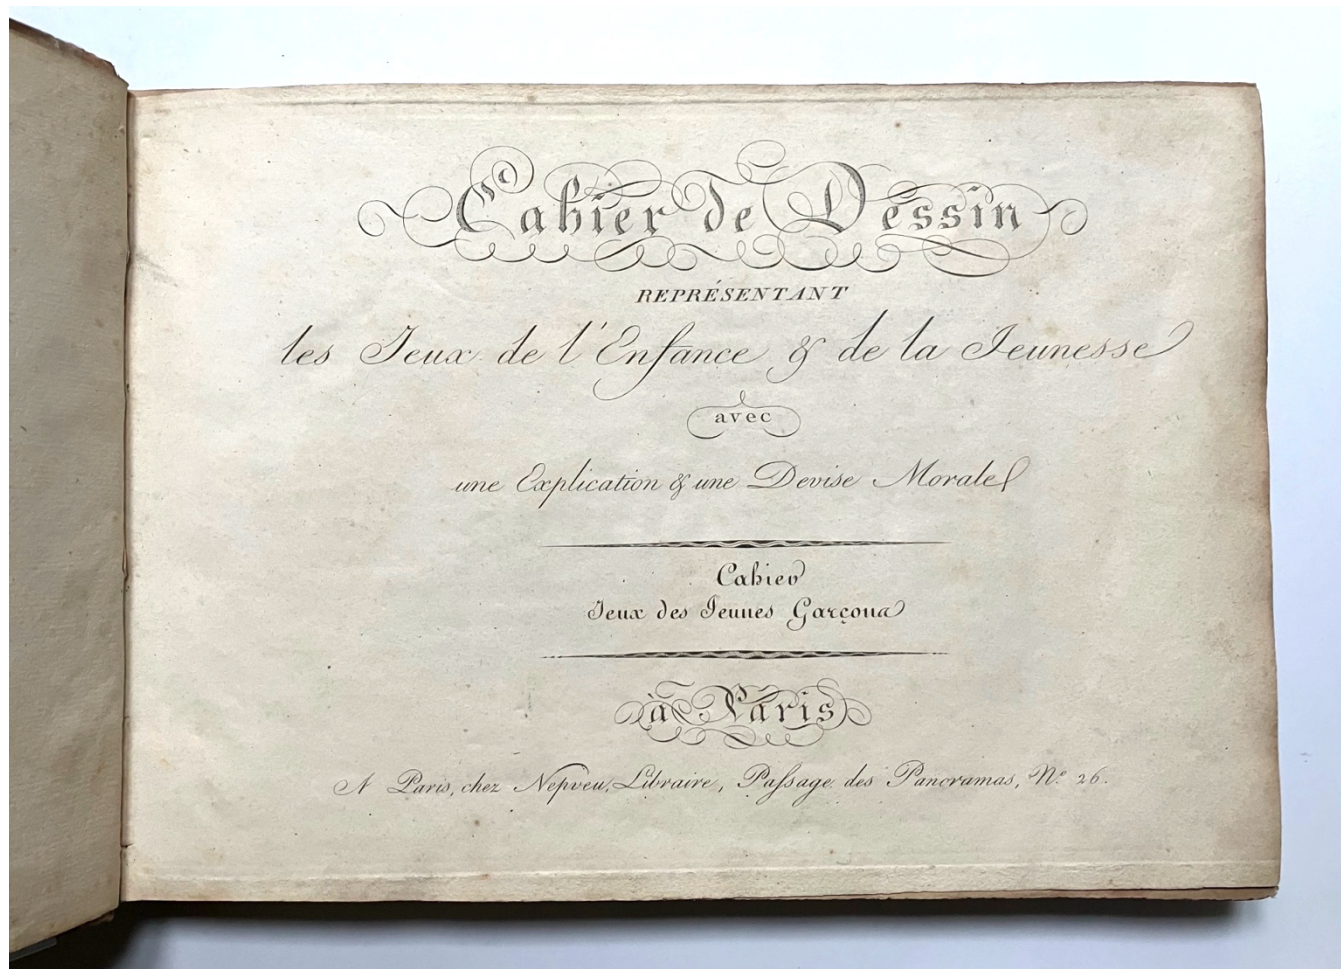 Cahier de Dessin
REPRÉSENTANT
les Jeux de l'Enfance & de la Jeunesse
avec
une Explication & une Devise Morale
Cahier
Jeux des Jeunes Garçons
à Paris
A Paris, chez Nepveu, Libraire, Passage des Panoramas, Nº 26.